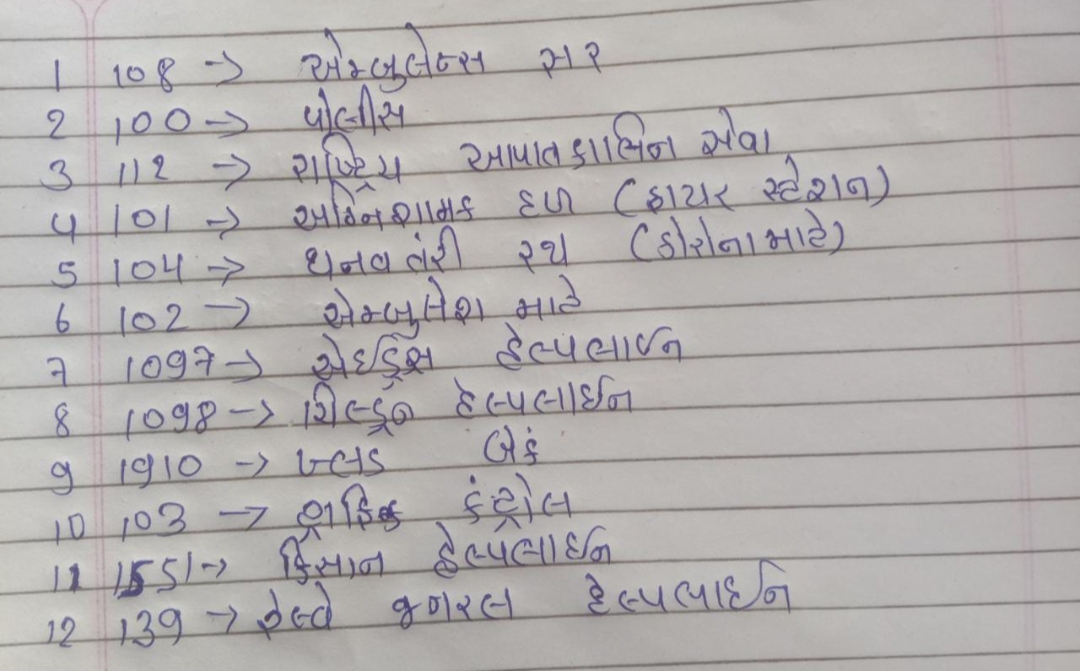 1 108 → એમ્બુલેન્સ સર
2 100 → પોલીસ
3 112 → રાષ્ટ્રિય આપાતકાલિન સેવા
4 101 → અગ્નિશામક દળ (ફાયર સ્ટેશન)
5 104 → ધનવતંરી રથ (કોરોના માટે)
6 102 → એમ્બુલેશ માટે
7 1097 → એઈડ્સ હેલ્પલાઈન
8 1098 → ચિલ્ડ્રન હેલ્પલાઈન
9 1910 → બ્લડ બેંક
10 103 → ટ્રાફિક કંટ્રોલ
11 1551 → કિસાન હેલ્પલાઈન
12 139 → રેલ્વે જનરલ હેલ્પલાઈન